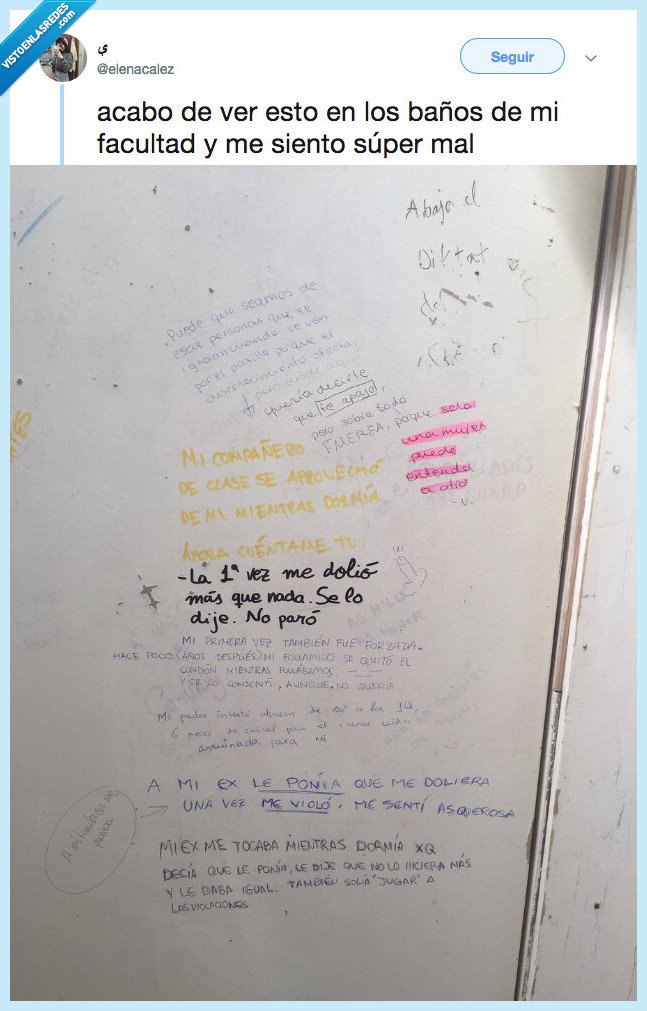 VISTOENLASREDES
.com
ي
@elenacalez
Seguir
acabo de ver esto en los baños de mi
facultad y me siento súper mal
Abajo el
Puede que seamos de
esas personas que se
ignoran cuando se ven
por el pasillo porque el
desconocimiento afecta,
quería decirte
que te apoyo,
pero sobre todo
FUERZA, porque solo
una mujer
puede
entender
a otra
-N.
MI COMPAÑERO
DE CLASE SE APROVECHÓ
DE MI MIENTRAS DORMÍA
AHORA CUÉNTAME TU:
-La 1ª vez me dolió
más que nada. Se lo
dije. No paró
MI PRIMERA VEZ TAMBIÉN FUE FORZADA.
HACE POCO (AÑOS DESPUÉS) MI FOLLAMIGO SE QUITÓ EL
CONDÓN MIENTRAS FOLLÁBAMOS
Y SE LO CONSENTÍ, AUNQUE NO QUERÍA
Mi padre intentó abusar de mí a los 14,
6 meses de cárcel para él y una vida
arruinada para mí
A MI EX LE PONÍA QUE ME DOLIERA
UNA VEZ ME VIOLÓ, ME SENTÍ ASQUEROSA
A mi también me
MI EX ME TOCABA MIENTRAS DORMÍA XQ
DECÍA QUE LE PONÍA, LE DIJE QUE NO LO HICIERA MÁS
Y LE DABA IGUAL. TAMBIÉN SOLÍA "JUGAR" A
LAS VIOLACIONES